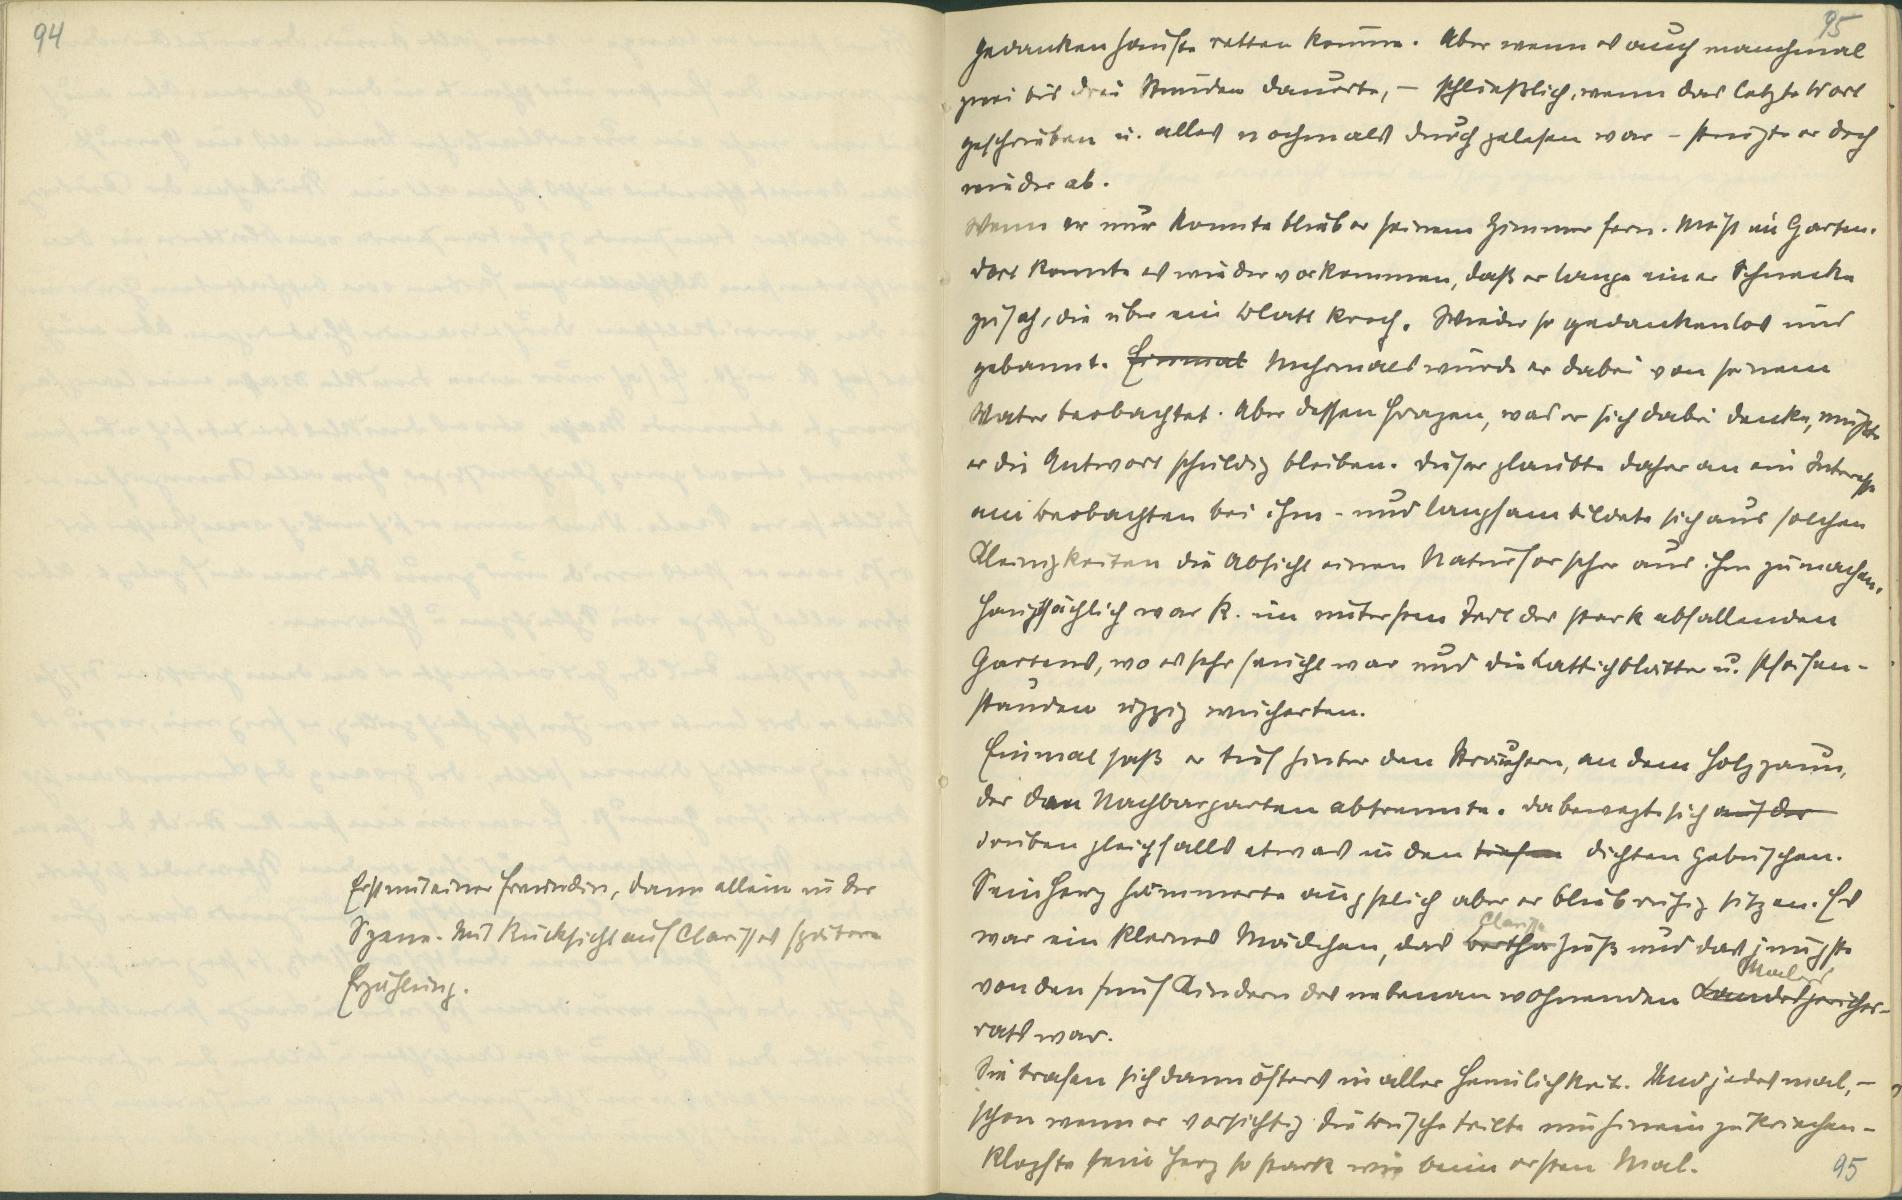 94
Erst mit einer Freundin, dann allein in der
Szene. Mit Rücksicht auf Clarisses spätere
Erzählung.
95
gedankenhaufte retten könne. Aber wenn es auch manchmal
zwei bis drei Stunden dauerte, – schließlich, wenn das letzte Wort
geschrieben u. alles nochmals durchgelesen war – stürzte er doch
wieder ab.
Wenn er nur konnte blieb er seinem Zimmer fern. Meist im Garten.
Dort konnte es wieder vorkommen, daß er lange einer Schnecke
zusah, die über ein Blatt kroch. Wieder so gedankenlos und
gebannt. Einmal Mehrmals wurde er dabei von seinem
Vater beobachtet. Aber dessen Fragen, was er sich dabei denke, mußte
er die Antwort schuldig bleiben. Dieser glaubte daher an ein Interesse
am Beobachten bei ihm – und langsam bildete sich aus solchen
Kleinigkeiten die Absicht einen Naturforscher aus ihm zu machen.
Hauptsächlich war R. im untersten Teil des stark abfallenden
Gartens, wo es sehr feucht war und die Lattichblätter u. Pfeifen-
stauden üppig wucherten.
Einmal saß er tief hinter den Sträuchern, an dem Holzzaun,
der den Nachbargarten abtrennte. Da bewegte sich auf der
drüben gleichfalls etwas in den tiefen dichten Gebüschen.
Sein Herz hämmerte ängstlich aber er blieb ruhig sitzen. Es
war ein kleines Mädchen, das Bertha Clarisse hieß und das jüngste
von den fünf Kindern des nebenan wohnenden Landesgerichts- Malers
rats war.
Sie trafen sich dann öfters in aller Heimlichkeit. Und jedesmal, –
schon wenn er vorsichtig die Büsche teilte um hinein zu kriechen –
klopfte sein Herz so stark wie beim ersten Mal.
95